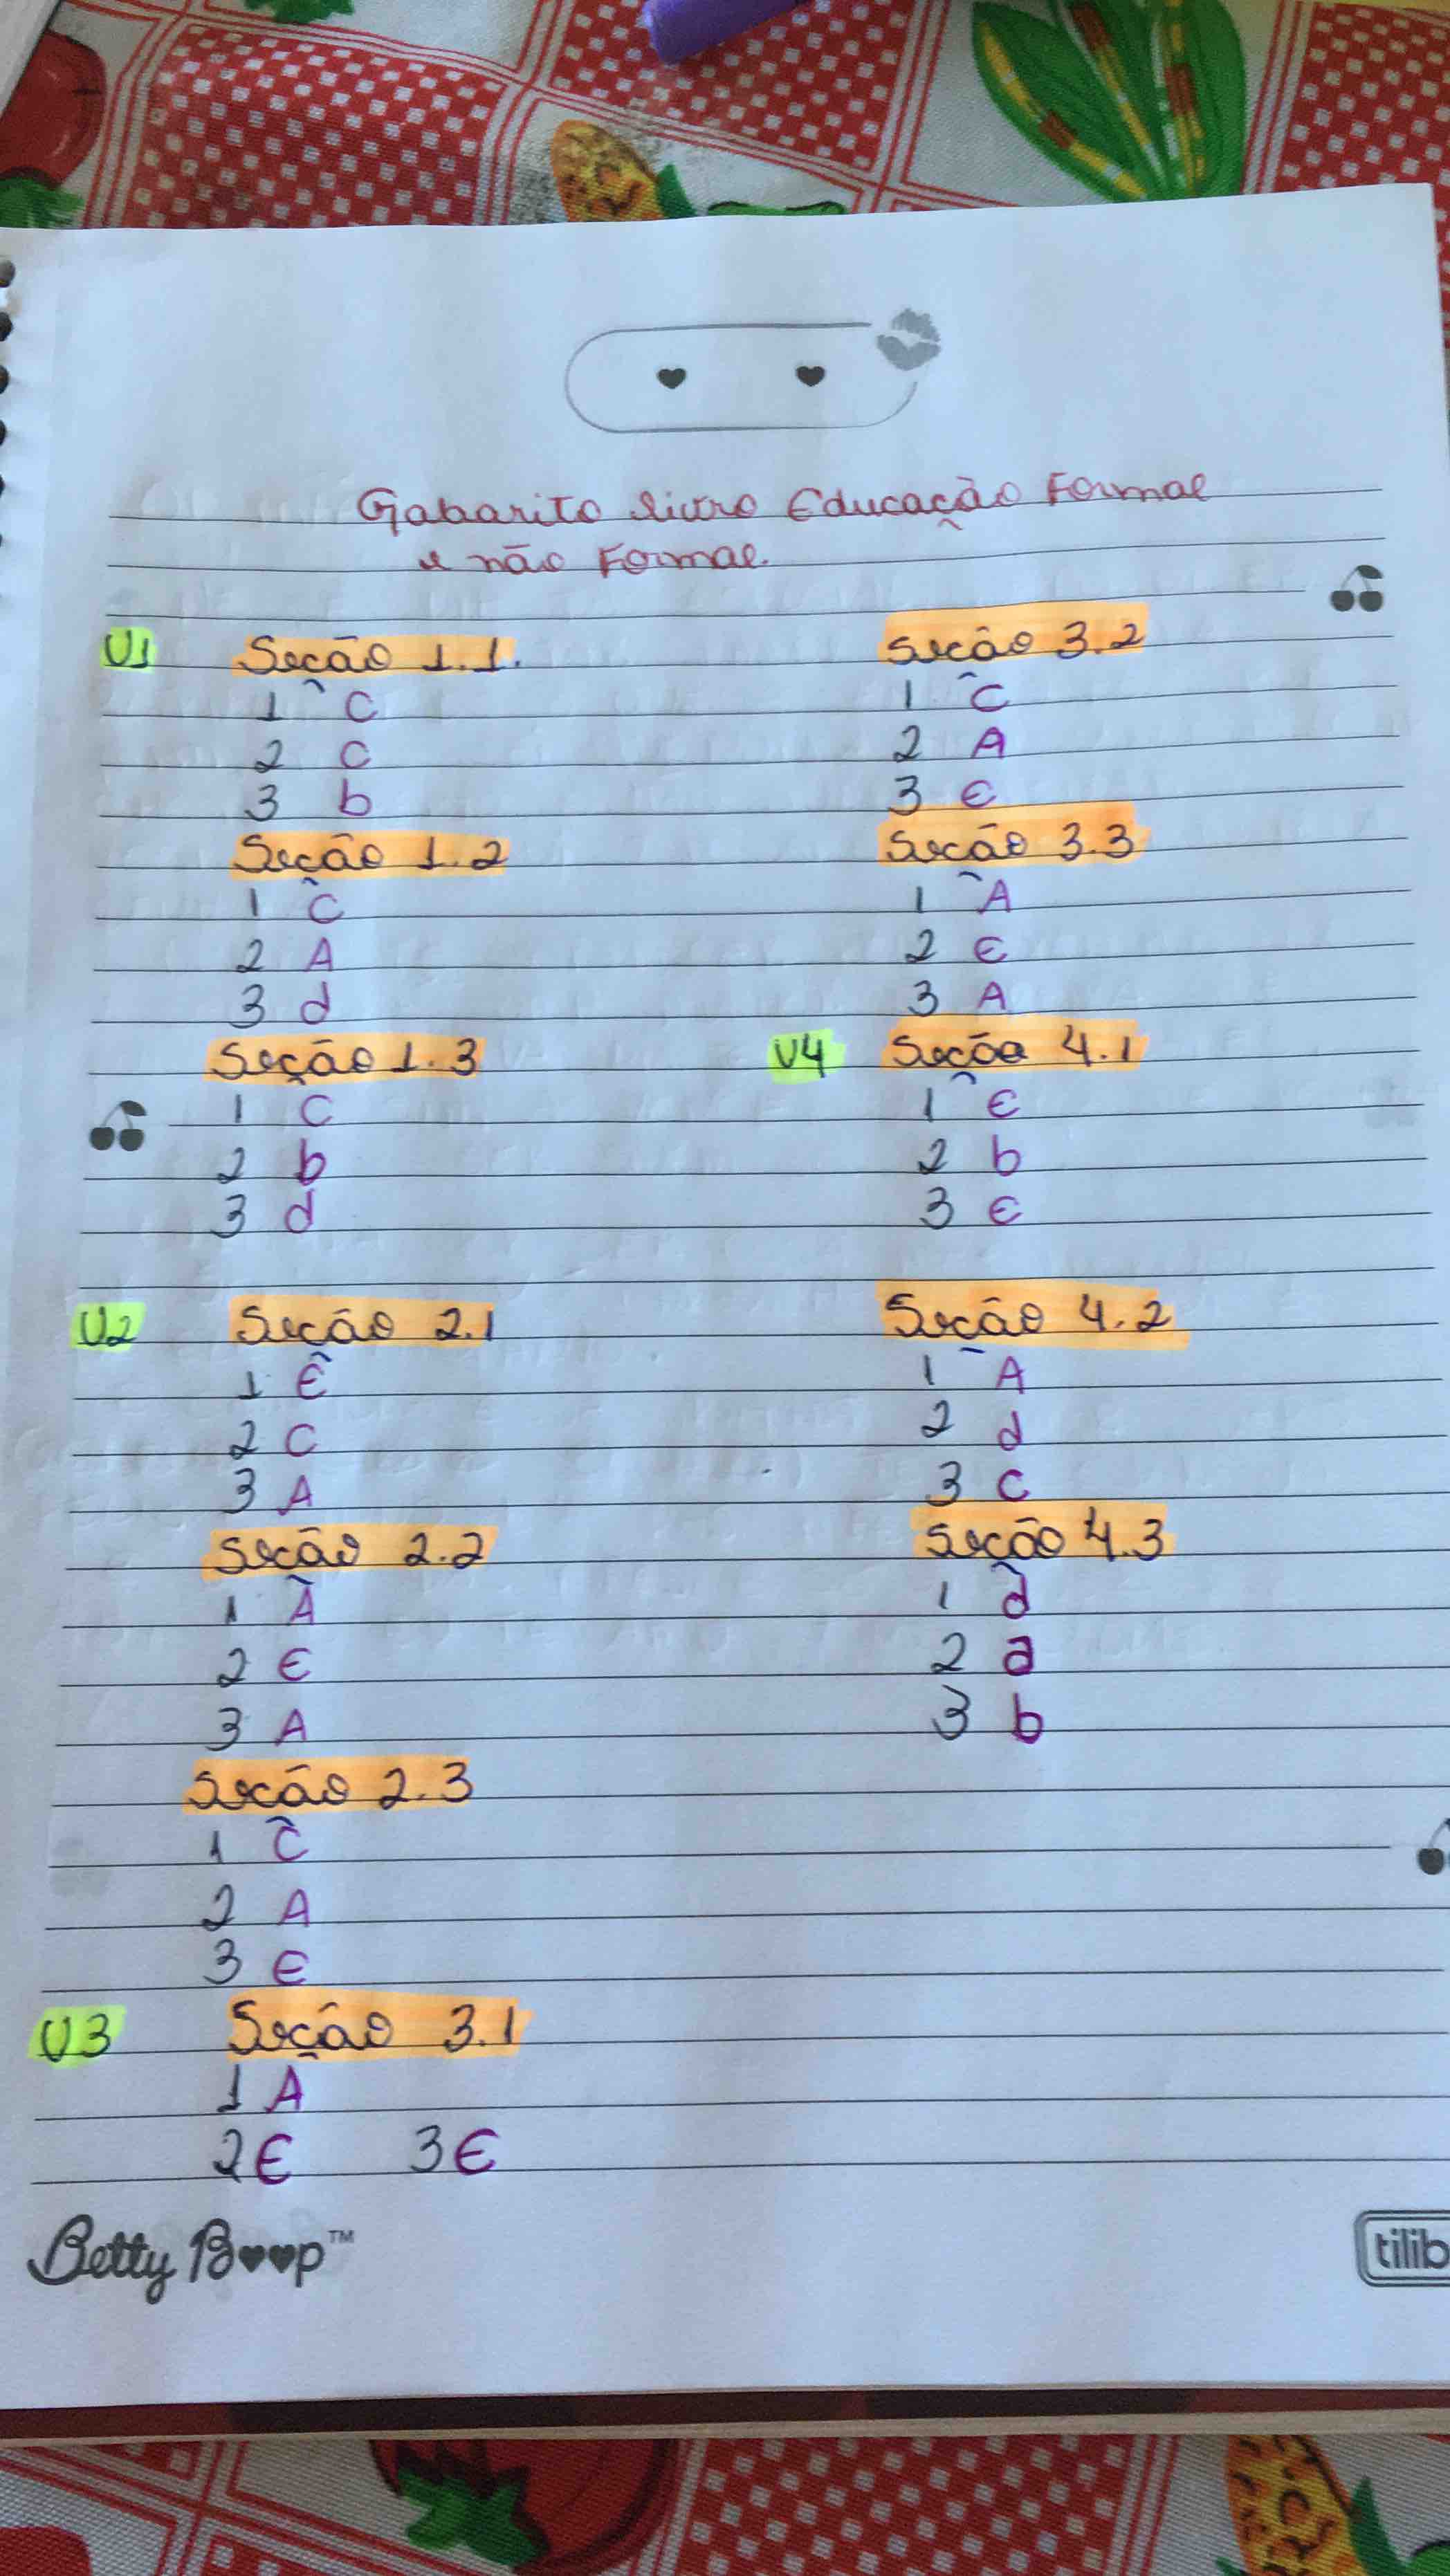 Gabarito Livro Educação Formal
e não Formal.
U1 Seção 1.1.
1 C
2 C
3 b
Seção 1.2
1 C
2 A
3 d
Seção 1.3
1 C
2 b
3 d
U2 Seção 2.1
1 E
2 C
3 A
Seção 2.2
1 A
2 E
3 A
Seção 2.3
1 C
2 A
3 E
U3 Seção 3.1
1 A
2 E 3 E
Seção 3.2
1 C
2 A
3 E
Seção 3.3
1 A
2 E
3 A
U4 Seção 4.1
1 E
2 b
3 E
Seção 4.2
1 A
2 d
3 C
Seção 4.3
1 d
2 a
3 b
Betty Boop™
tilib